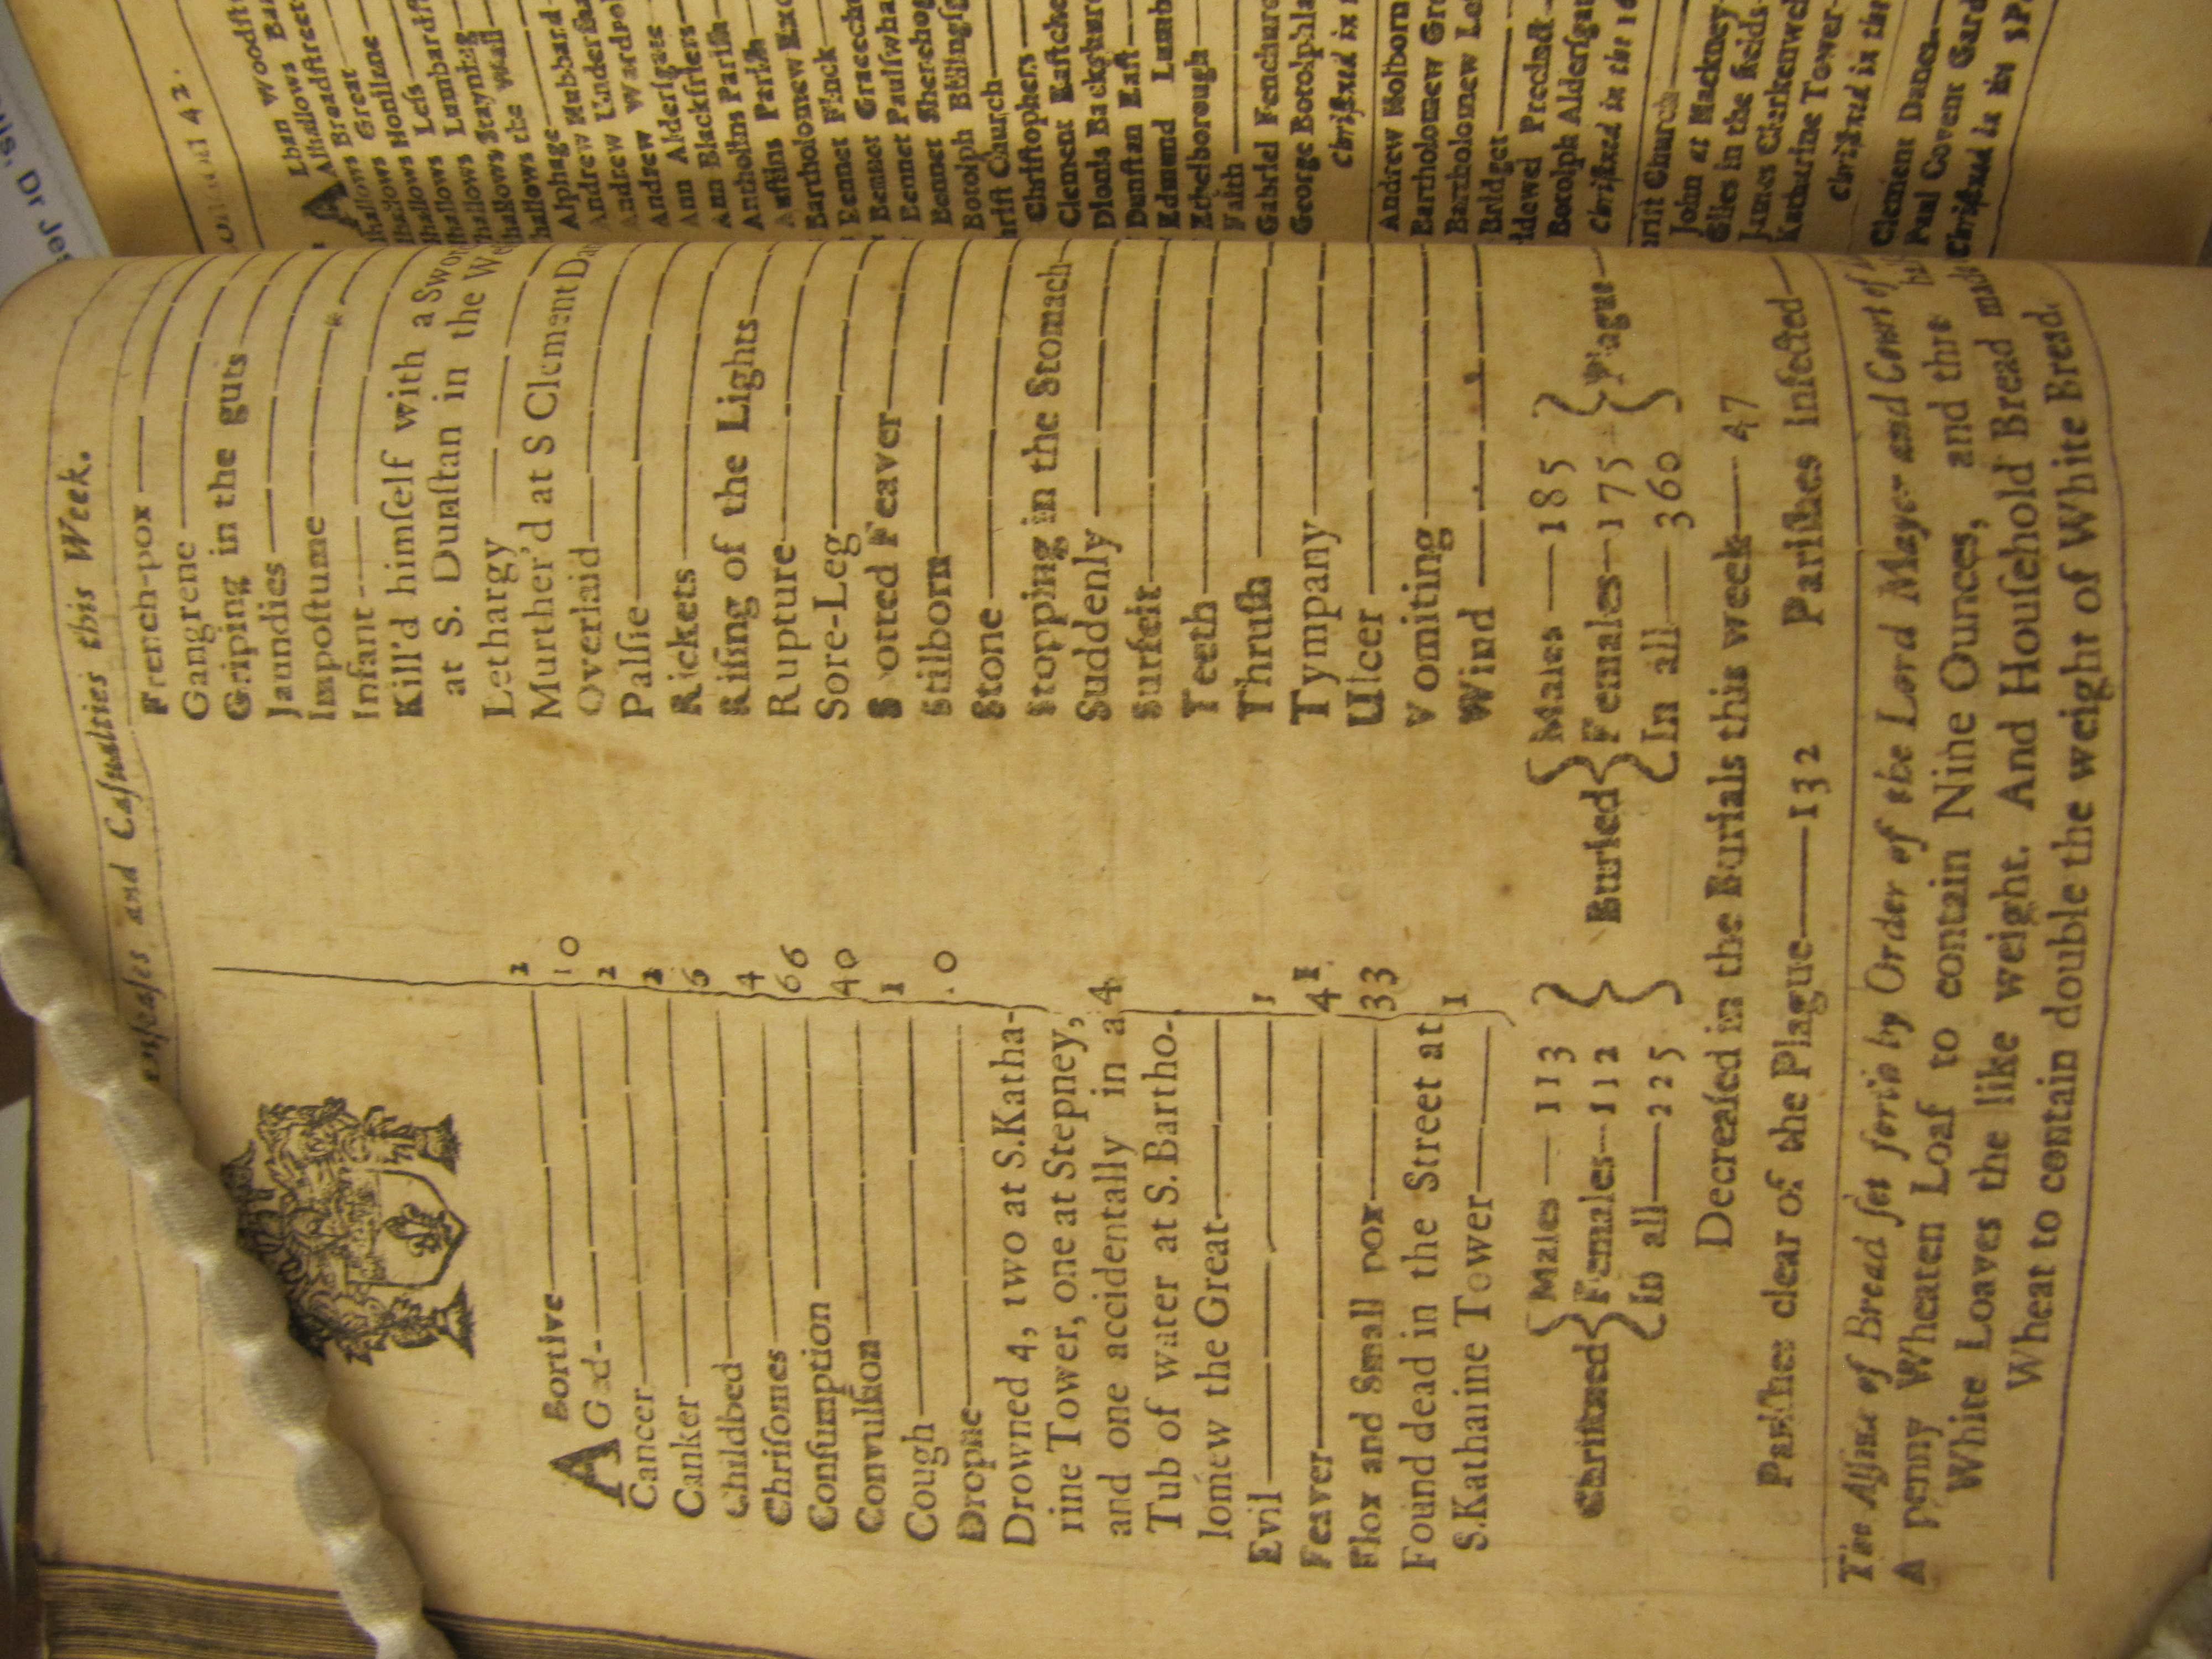 and Caſualties this Week.
Abortive 2
Aged 10
Cancer 2
Canker 2
Childbed 6
Chriſomes 4
Conſumption 66
Convulſion 40
Cough 1
Dropſie 10
Drowned 4, two at S.Katha-
rine Tower, one at Stepney,
and one accidentally in a 4
Tub of water at S. Bartho-
lomew the Great
Evil 1
Feaver 41
Flox and Small pox 33
Found dead in the Street at
S.Kathaine Tower 1
French-pox
Gangrene
Griping in the guts
Jaundies
Impoſtume
Infant
Kill'd himſelf with a Swor
at S. Dunſtan in the We
Lethargy
Murther'd at S Clement Da
Overlaid
Palſie
Rickets
Riſing of the Lights
Rupture
Sore-Leg
Spotted Feaver
Stilborn
Stone
Stopping in the Stomach
Suddenly
Surfeit
Teeth
Thruſh
Tympany
Ulcer
Vomiting
Wind
Chriſtned { Males — 113 Females — 112 In all — 225 }
Buried { Males — 185 Females — 175 In all — 360 } Plague
Decreaſed in the Burials this week — 47
Pariſhes clear of the Plague — 132 Pariſhes Infected
The Aſſize of Bread ſet forth by Order of the Lord Mayor and Court of
A penny Wheaten Loaf to contain Nine Ounces, and three
White Loaves the like weight. And Houſehold Bread made
Wheat to contain double the weight of White Bread.
42.
Lban Woodſtr
Alhallows Ba
Alhallows Breadſtreet
hallows Great
hallows Honilane
hallows Leſs
hallows Lumbardſt
hallows Stayning
hallows the Wall
Alphage
Andrew Hubbard
Andrew Underſha
Andrew Wardro
Ann Alderſgate
Ann Blackfriers
Antholins Pariſh
Auſtins Pariſh
Bartholomew Exc
Bennet Finck
Bennet Gracech
Bennet Paulſwha
Bennet Sherehog
Botolph Billingſg
hriſt Church
Chriſtophers
Clement Eaſtche
Dionis Backchurc
Dunſtan Eaſt
Edmund Lumb
Ethelborough
Faith
Gabriel Fenchurc
George Botolphla
Chriſtned in
Andrew Holborn
Bartholomew Gre
Bartholomew Le
Bridget
Botolph Alderſga
Chriſtned in the 16
rist Church
John at Hackney
Giles in the Fields
James Clerkenwel
Katharine Tower
Chriſtned in the
Clement Danes
Paul Covent Gard
Chriſtned in the 5 P